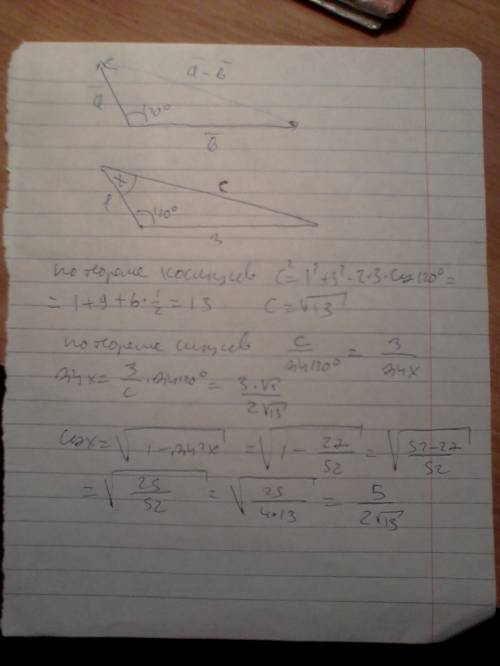 a̅ - b̅
a̅
120°
b̅
x
c
1
120°
3
по теореме косинусов c² = 1² + 3² - 2·3·cos120° =
= 1 + 9 + 6·1/2 = 13 c = √13
по теореме синусов c/sin120° = 3/sinx
sinx = 3/c · sin120° = 3·√3/2√13
cosx = √1 - sin²x = √1 - 27/52 = √52-27/52
= √25/52 = √25/4·13 = 5/2√13